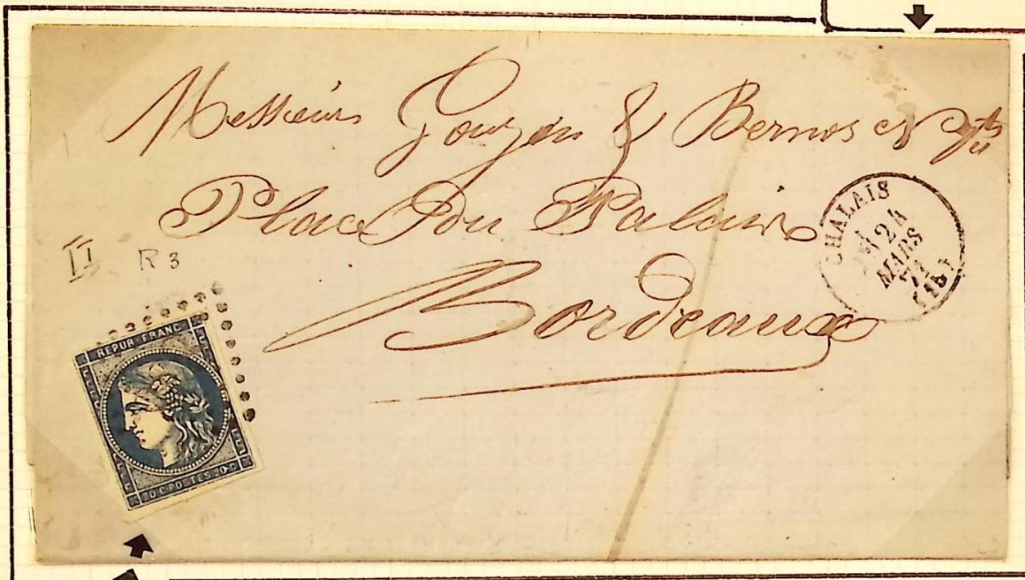 Messieurs Gouzin & Bernos et
Place Du Palais
Bordeaux
CHALAIS
24
MARS
71
(15)
II R3
REPUB FRANC
20 C POSTES 20 C